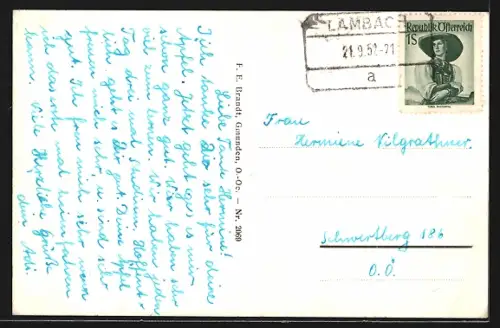 Liebe Tante Hermine!
Ich danke Dir sehr für deine
Äpfel. Jetzt geht es mir
schon ganz gut. Wir haben sehr
viel zum lernen. Wir haben jeden
Tag drei mal Studium. Hoffent-
lich geht es Dir gut. Deine Äpfel
freuen mich sehr, u. sind sehr
gut. Ich freu mich sehr wenn
ich das mal heimfahren
kann. Viele Herzliche Grüße
dein Adi.
F. E. Brandt, Gmunden, O.-Oe. — Nr. 2069
LAMBACH
21.9.52-21
a
Republik Österreich
1S
Frau
Hermine Vilgrathner
Schwertberg 186
O.Ö.